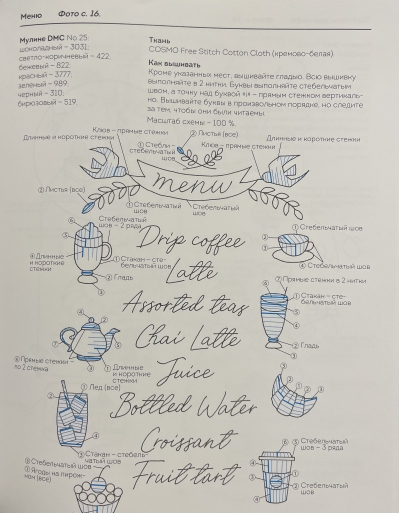 Меню Фото с. 16.
Мулине DMC No 25:
шоколадный – 3031;
светло-коричневый – 422
бежевый – 822;
красный – 3777;
зеленый – 989;
черный – 310;
бирюзовый – 519.
Ткань
COSMO Free Stitch Cotton Cloth (кремово-белая).
Как вышивать
Кроме указанных мест, вышивайте гладью. Всю вышивку
выполняйте в 2 нити. Буквы выполняйте стебельчатым
швом, а точку над буквой «i» – прямым стежком вертикаль-
но. Вышивайте буквы в произвольном порядке, но следите
за тем, чтобы они были читаемы.
Масштаб схемы – 100 %.
Длинные и короткие стежки
Клюв – прямые стежки
② Листья (все)
① Стебли –
стебельчатый
шов
Клюв – прямые стежки
Длинные и короткие стежки
menu
② Листья (все)
① Стебельчатый
шов
Стебельчатый
шов
Стебельчатый
шов – 2 ряда
④ Длинные
и короткие
стежки
① Стакан – сте-
бельчатый шов
② Гладь
① Стебельчатый
шов
④ Стебельчатый
шов
Drip coffee
Latte
Assorted teas
Chai Latte
Juice
Bottled Water
Croissant
Fruit tart
⑦ Прямые стежки в 2 нитки
① Стакан – сте-
бельчатый шов
② Гладь
⑧ Прямые стежки
по 2 стежка
① Длинные
и короткие
стежки
① Лед (все)
③ Стакан – стебель-
чатый шов
② Стебельчатый
шов
① Ягоды на пирож-
ном (все)
⑤ Стебельчатый
шов – 3 ряда
② Стебельчатый
шов